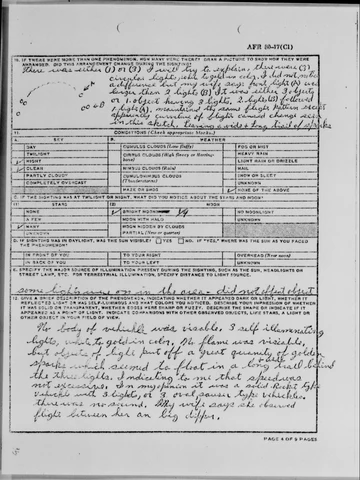 AFR 80-17(C1)
10. IF THERE WERE MORE THAN ONE PHENOMENON, HOW MANY WERE THERE? DRAW A PICTURE TO SHOW HOW THEY WERE
ARRANGED. DID THIS ARRANGEMENT CHANGE DURING THE SIGHTING?
There was either (1) or (3) I will try to explain, there were (3)
circular lights, white to gold in color, I did not notice
a difference but my wife says front light (A) was
larger than 2 lights (B) It was either 3 objects
or 1 object having 3 lights, 2 lights (B) followed
light (A), maintaining the same flight pattern except
apparently curvature of flight caused change seen
in this sketch. Leaving a wide & long trail of sparks
11. CONDITIONS (Check appropriate blocks.)
A. SKY B. WEATHER
DAY CUMULUS CLOUDS (Low fluffy) FOG OR MIST
TWILIGHT CIRRUS CLOUDS (High fleecy or Herring-bone) HEAVY RAIN
NIGHT LIGHT RAIN OR DRIZZLE
CLEAR NIMBUS CLOUDS (Rain) HAIL
PARTLY CLOUDY CUMULONIMBUS CLOUDS (Thunderstorms) SNOW OR SLEET
COMPLETELY OVERCAST UNKNOWN
HAZE OR SMOG NONE OF ABOVE
C. IF THE SIGHTING WAS AT TWILIGHT OR NIGHT, WHAT DID YOU NOTICE ABOUT THE STARS AND MOON?
(1) STARS (2) MOON
NONE BRIGHT MOON 1/4 NO MOONLIGHT
A FEW MOON WITH HALO UNKNOWN
MANY MOON HIDDEN BY CLOUDS
UNKNOWN PARTIAL (New or quarter)
D. IF SIGHTING WAS IN DAYLIGHT, WAS THE SUN VISIBLE? YES NO. IF "YES," WHERE WAS THE SUN AS YOU FACED
THE PHENOMENON?
IN FRONT OF YOU TO YOUR RIGHT OVERHEAD (Near noon)
IN BACK OF YOU TO YOUR LEFT UNKNOWN
E. SPECIFY THE MAJOR SOURCE OF ILLUMINATION PRESENT DURING THE SIGHTING, SUCH AS THE SUN, HEADLIGHTS OR
STREET LAMP, ETC. FOR TERRESTRIAL ILLUMINATION, SPECIFY DISTANCE TO LIGHT SOURCE.
some lights were on in the area - did not effect object
12. GIVE A BRIEF DESCRIPTION OF THE PHENOMENON, INDICATING WHETHER IT APPEARED DARK OR LIGHT, WHETHER IT
REFLECTED LIGHT OR WAS SELF-LUMINOUS AND WHAT COLOR YOU NOTICED. DESCRIBE YOUR IMPRESSION OF WHETHER
IT WAS SOLID OR TRANSPARENT, WHETHER EDGES WERE SHARP OR FUZZY. DESCRIBE THE SHAPE OR INDICATE IF IT
APPEARED AS A POINT OF LIGHT. INDICATE COMPARISONS WITH OTHER OBSERVED OBJECTS, LIKE STARS, A LIGHT OR
OTHER OBJECT IN YOUR FIELD OF VIEW.
No body of vehicle was visable. 3 self illuminating
lights, white to gold in color. No flame was visiable,
but objects of light put off a great quanity of golden
sparks which seemed to float in a long trail behind
the three lights. Indicating to me that speed was
not excessive. In my opinion it was a solid Rocket type
vehicle with 3 lights, or 3 oval saucer type vehicles.
there was no sound. My wife says she observed
flight between her an big dipper.
PAGE 4 OF 9 PAGES